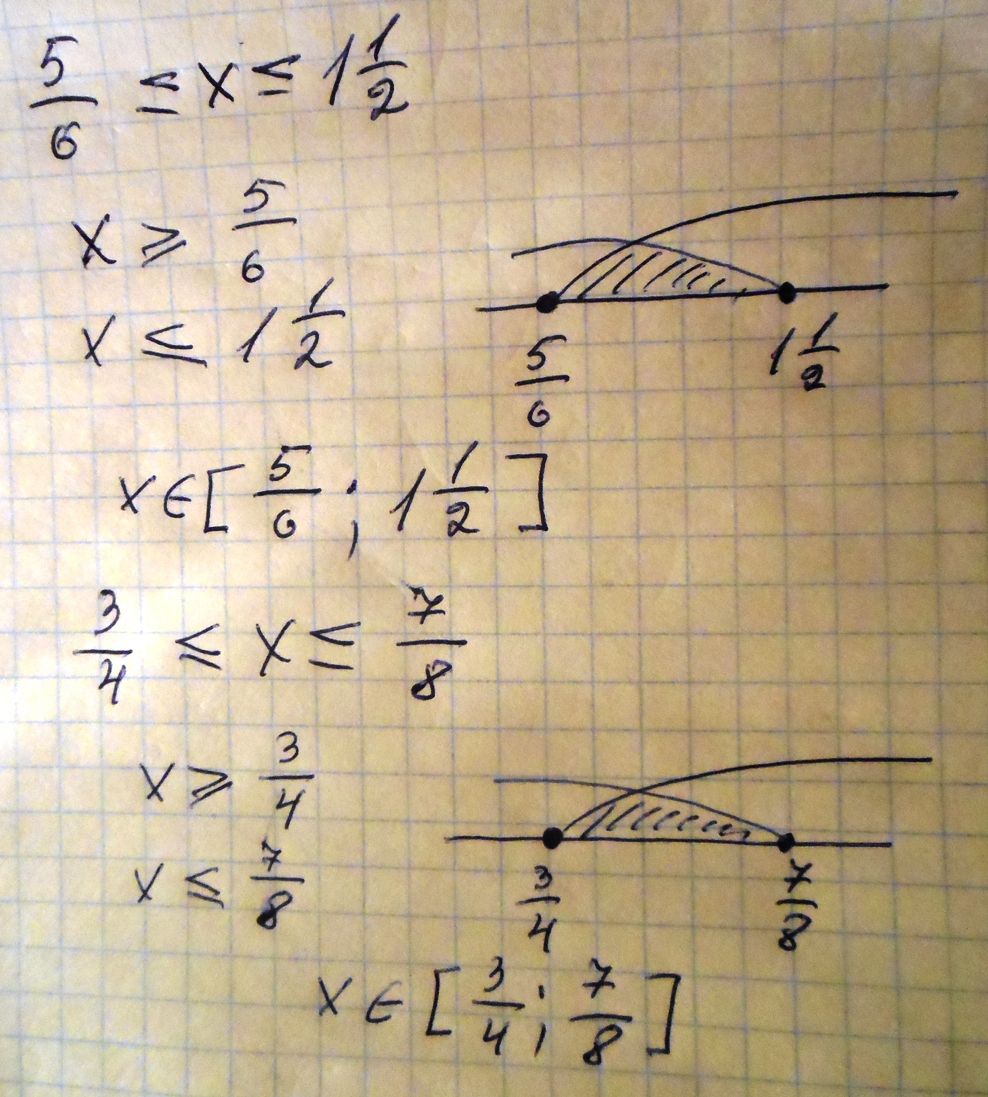 5/6 ≤ x ≤ 1 1/2
x ≥ 5/6
x ≤ 1 1/2
5/6 1 1/2
x ∈ [5/6 ; 1 1/2]
3/4 ≤ x ≤ 7/8
x ≥ 3/4
x ≤ 7/8
3/4 7/8
x ∈ [3/4 ; 7/8]